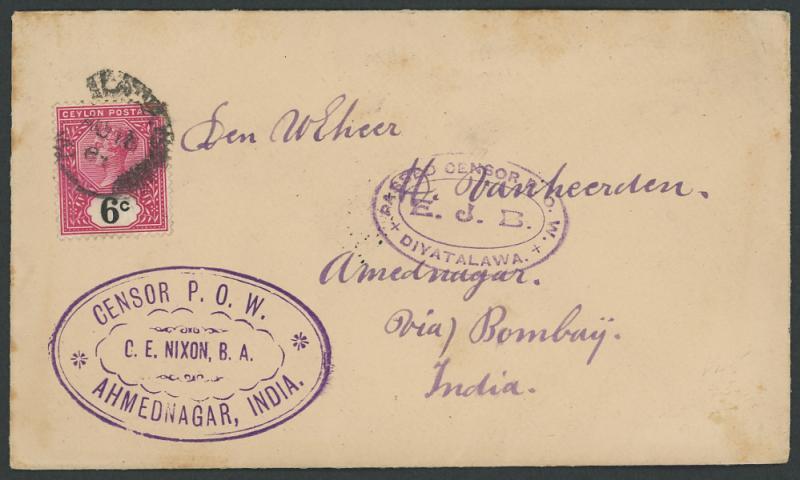 CEYLON POSTA
6c
Den WEheer
H. Vanheerden.
Amednagar.
Via) Bombaÿ.
India.
PASSED CENSOR P. O. W.
E. J. B.
+ DIYATALAWA. +
CENSOR P. O. W.
C. E. NIXON, B. A.
AHMEDNAGAR, INDIA.